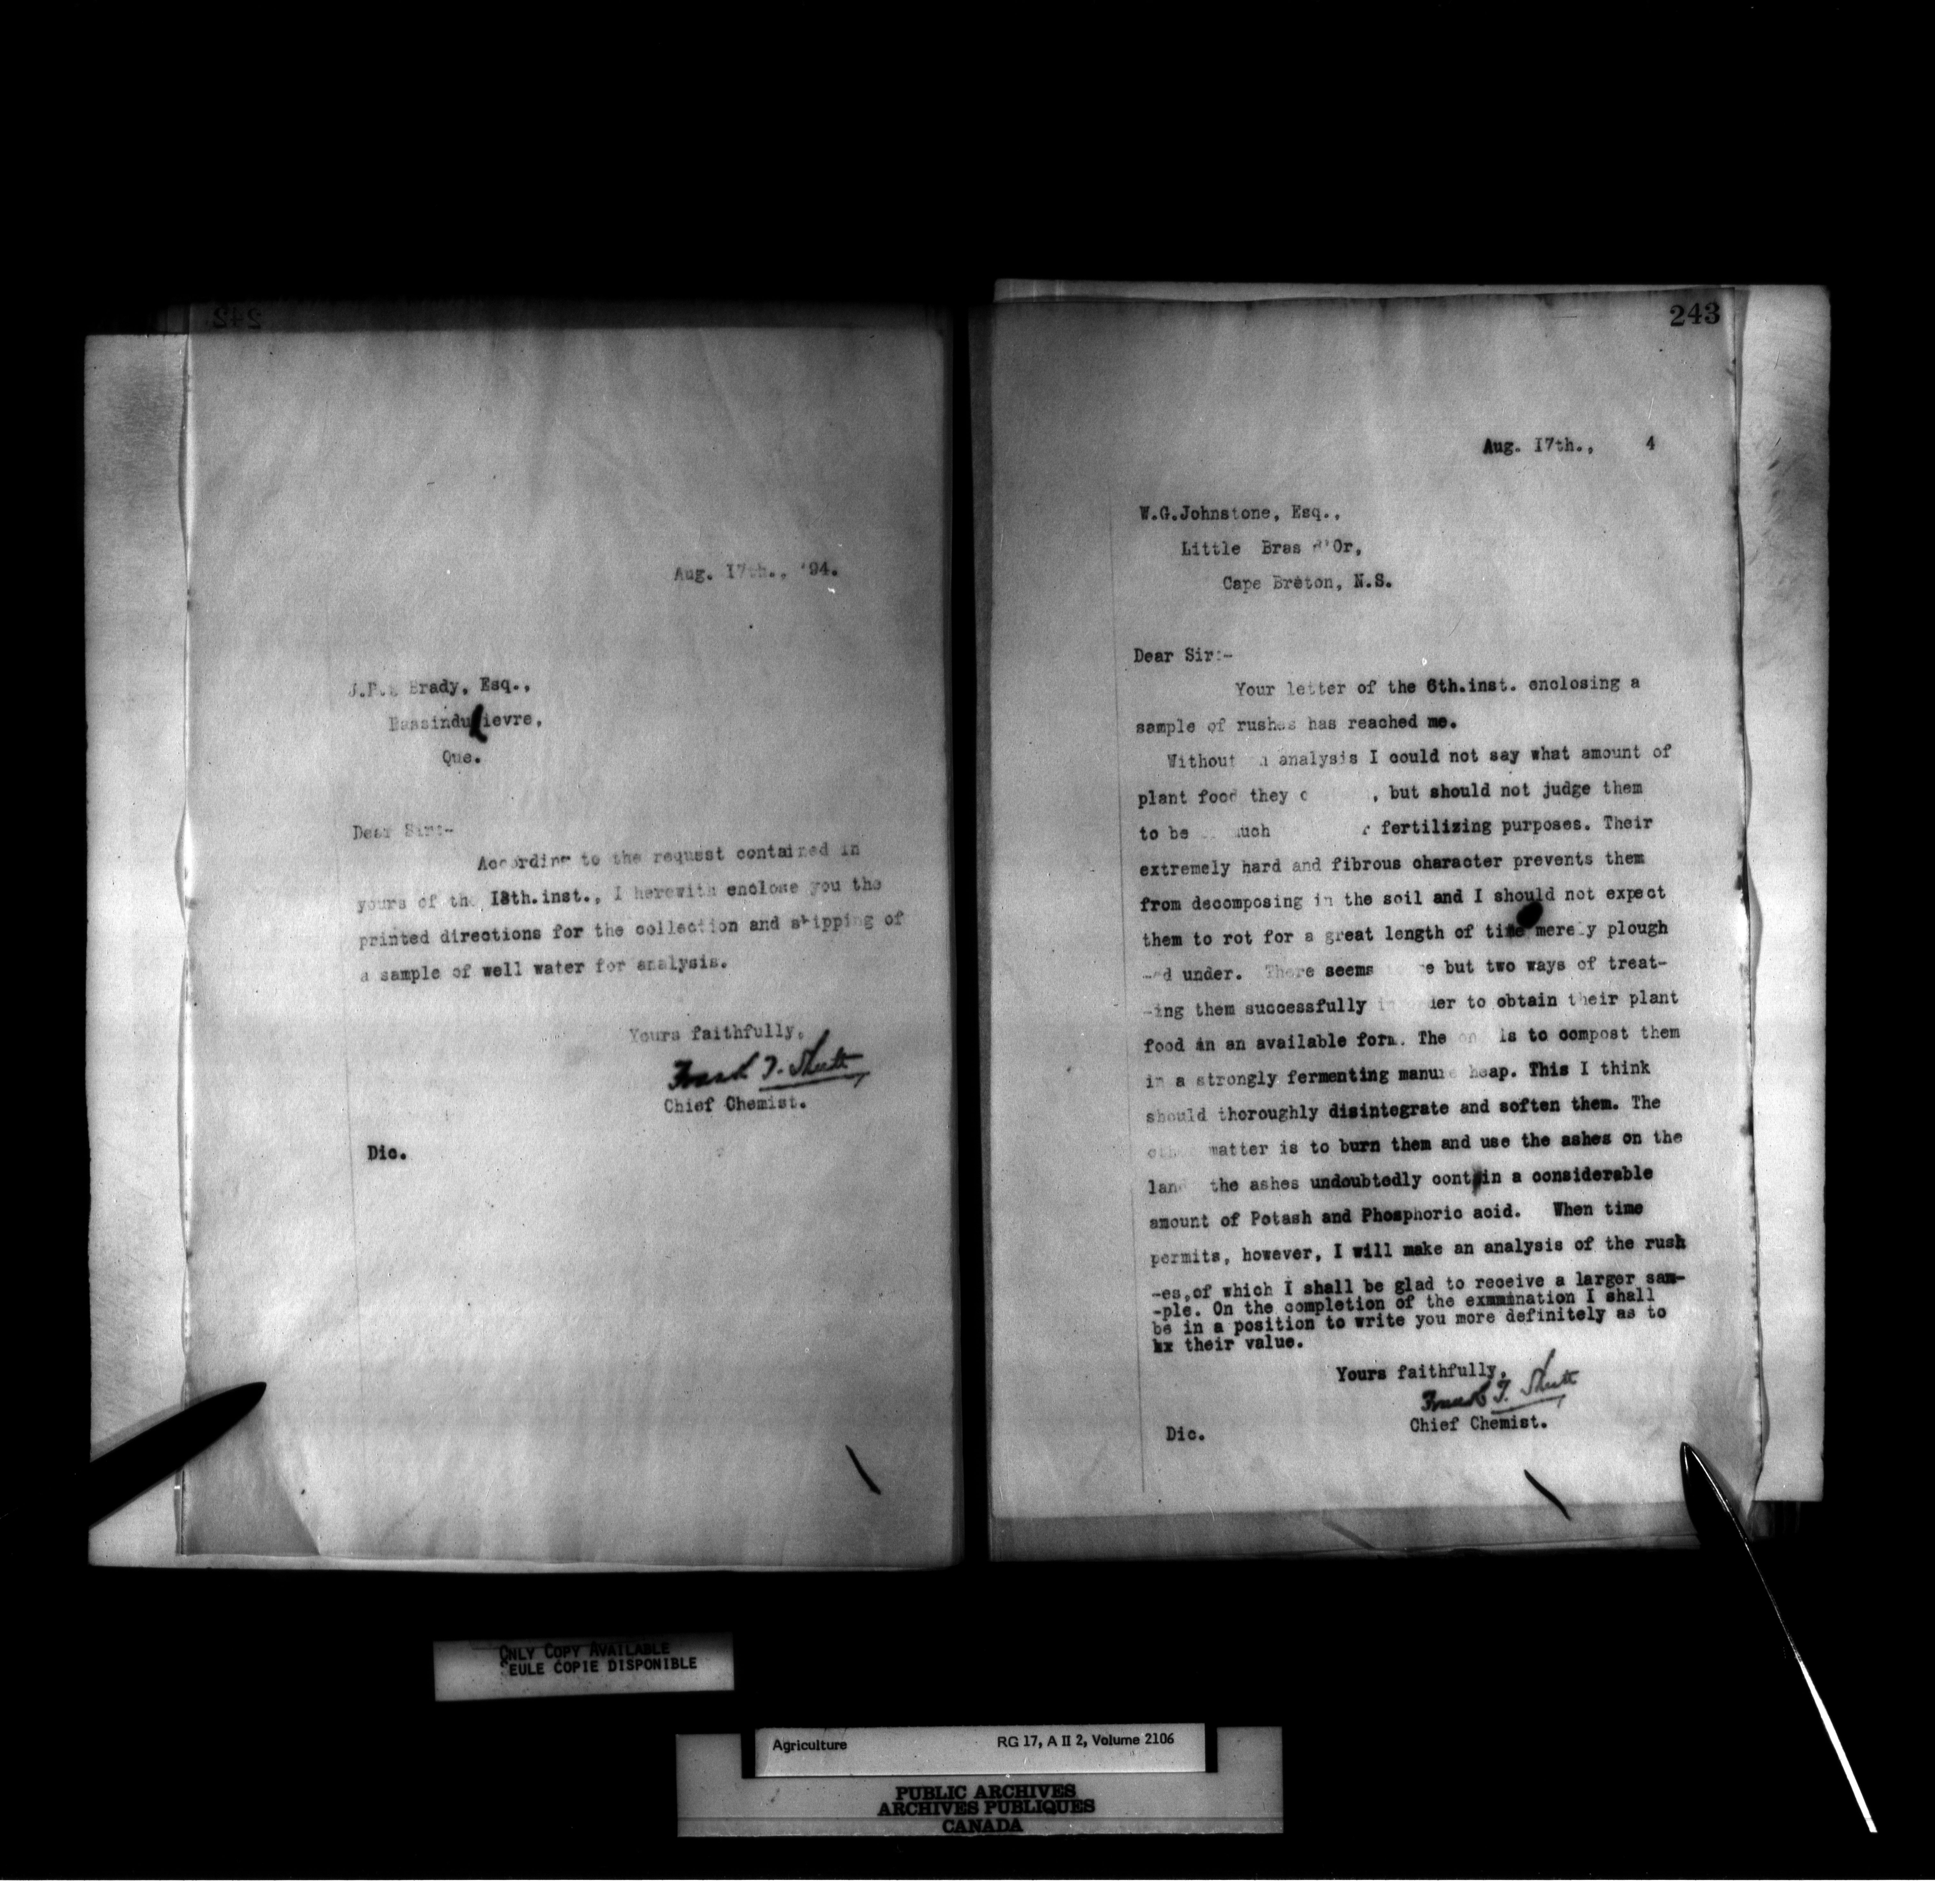 242
Aug. 17th., '94.
Brady, Esq.,
Que.
Dear Sir:-
According to the requsst contained in
yours of the 13th.inst., I herewith enclose you the
printed directions for the collection and shipping of
a sample of well water for analysis.
Yours faithfully,
Frank T. Shutt
Chief Chemist.
Dic.
243
Aug. 17th., 4
W.G.Johnstone, Esq.,
Little Bras d'Or,
Cape Breton, N.S.
Dear Sir:-
Your letter of the 6th.inst. enclosing a
sample of rushes has reached me.
Without analysis I could not say what amount of
plant food they , but should not judge them
to be much fertilizing purposes. Their
extremely hard and fibrous character prevents them
from decomposing in the soil and I should not expect
them to rot for a great length of time merely plough
-ed under. There seems but two ways of treat-
-ing them successfully to obtain their plant
food in an available form. The is to compost them
in a strongly fermenting manure heap. This I think
should thoroughly disintegrate and soften them. The
matter is to burn them and use the ashes on the
land the ashes undoubtedly contain a considerable
amount of Potash and Phosphoric acid. When time
permits, however, I will make an analysis of the rush
-es,of which I shall be glad to receive a larger sam-
-ple. On the completion of the exmmination I shall
be in a position to write you more definitely as to
their value.
Yours faithfully,
Frank T. Shutt
Chief Chemist.
Dic.
ONLY COPY AVAILABLE
SEULE COPIE DISPONIBLE
Agriculture RG 17, A II 2, Volume 2106
PUBLIC ARCHIVES
ARCHIVES PUBLIQUES
CANADA